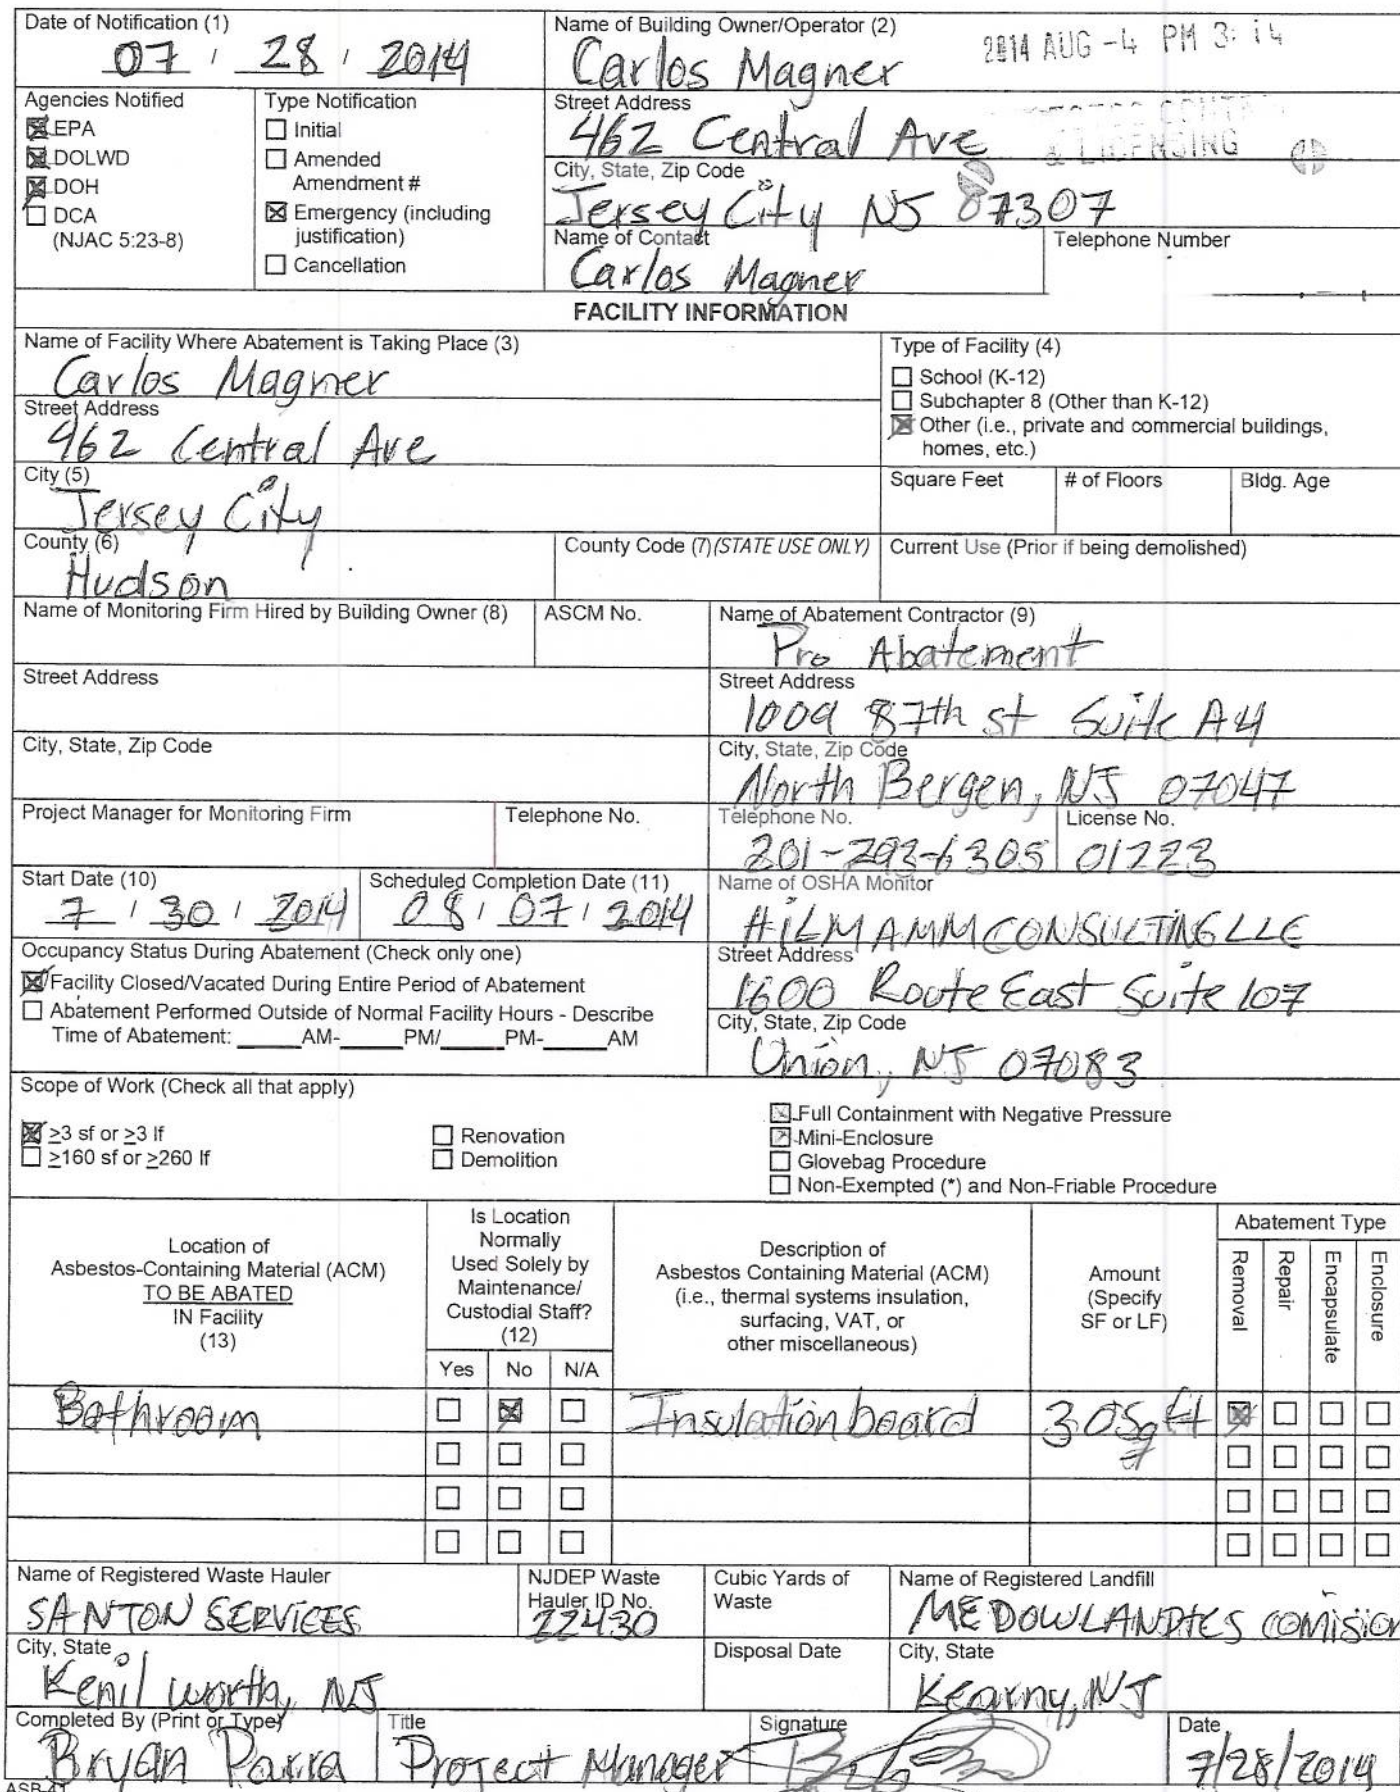 Date of Notification (1)
07 / 28 / 2014
Name of Building Owner/Operator (2)
Carlos Magner
2014 AUG -4 PM 3: 14
Agencies Notified
EPA
DOLWD
DOH
DCA
(NJAC 5:23-8)
Type Notification
Initial
Amended
Amendment #
Emergency (including
justification)
Cancellation
Street Address
462 Central Ave
& LICENSING
City, State, Zip Code
Jersey City NJ 07307
Name of Contact
Carlos Magner
Telephone Number
FACILITY INFORMATION
Name of Facility Where Abatement is Taking Place (3)
Carlos Magner
Street Address
462 Central Ave
City (5)
Jersey City
County (6)
Hudson
County Code (7)(STATE USE ONLY)
Type of Facility (4)
School (K-12)
Subchapter 8 (Other than K-12)
Other (i.e., private and commercial buildings,
homes, etc.)
Square Feet
# of Floors
Bldg. Age
Current Use (Prior if being demolished)
Name of Monitoring Firm Hired by Building Owner (8)
ASCM No.
Name of Abatement Contractor (9)
Pro Abatement
Street Address
Street Address
1009 87th st Suite A4
City, State, Zip Code
City, State, Zip Code
North Bergen, NJ 07047
Project Manager for Monitoring Firm
Telephone No.
Telephone No.
201-293-6305
License No.
01223
Start Date (10)
7 / 30 / 2014
Scheduled Completion Date (11)
08 / 07 / 2014
Name of OSHA Monitor
HILMAMM CONSULTING LLC
Occupancy Status During Abatement (Check only one)
Facility Closed/Vacated During Entire Period of Abatement
Abatement Performed Outside of Normal Facility Hours - Describe
Time of Abatement: _____AM-_____PM/_____PM-_____AM
Street Address
1600 Route East Suite 107
City, State, Zip Code
Union, NJ 07083
Scope of Work (Check all that apply)
≥3 sf or ≥3 lf
≥160 sf or ≥260 lf
Renovation
Demolition
Full Containment with Negative Pressure
Mini-Enclosure
Glovebag Procedure
Non-Exempted (*) and Non-Friable Procedure
Location of
Asbestos-Containing Material (ACM)
TO BE ABATED
IN Facility
(13)
Is Location
Normally
Used Solely by
Maintenance/
Custodial Staff?
(12)
Yes No N/A
Description of
Asbestos Containing Material (ACM)
(i.e., thermal systems insulation,
surfacing, VAT, or
other miscellaneous)
Amount
(Specify
SF or LF)
Abatement Type
Removal
Repair
Encapsulate
Enclosure
Bathroom Insulation board 30 Sq ft
Name of Registered Waste Hauler
SANTON SERVICES
NJDEP Waste
Hauler ID No.
22430
Cubic Yards of
Waste
Name of Registered Landfill
MEDOWLANDTCS COMISION
City, State
Kenil worth, NJ
Disposal Date
City, State
Kearny, NJ
Completed By (Print or Type)
Bryan Parra
Title
Project Manager
Signature
Date
7/28/2014
ASB-41